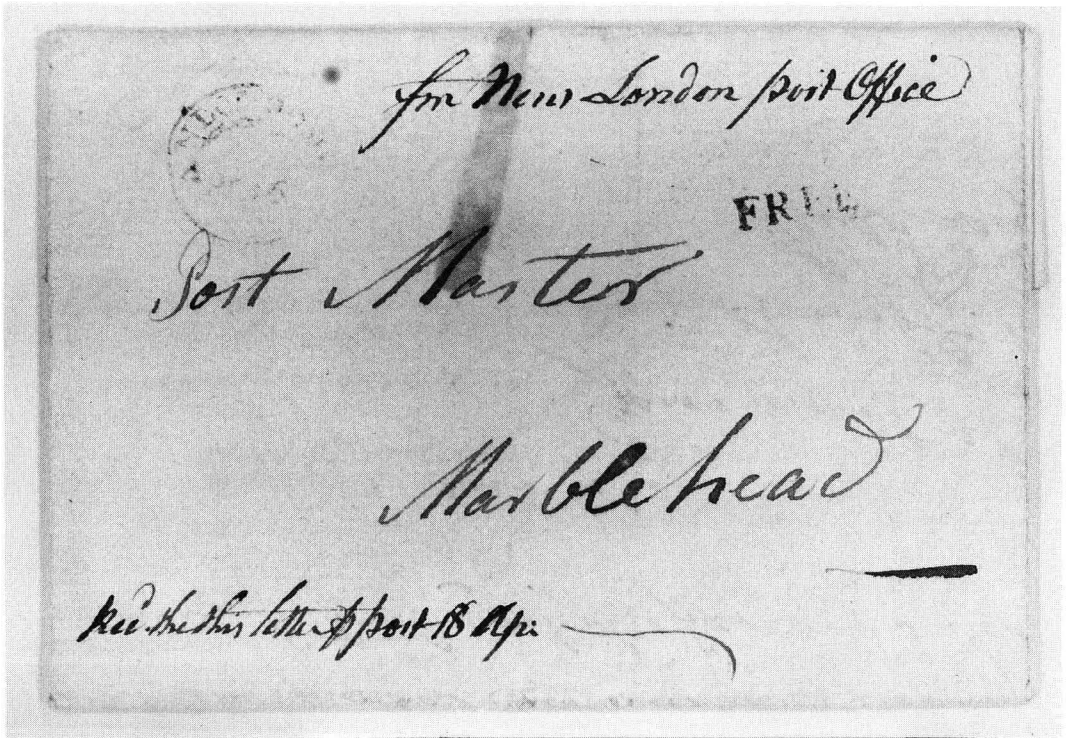 fm New London post Office
FREE
Post Master
Marblehead
Rec'd the this letter ⅌ post 18 Apr: